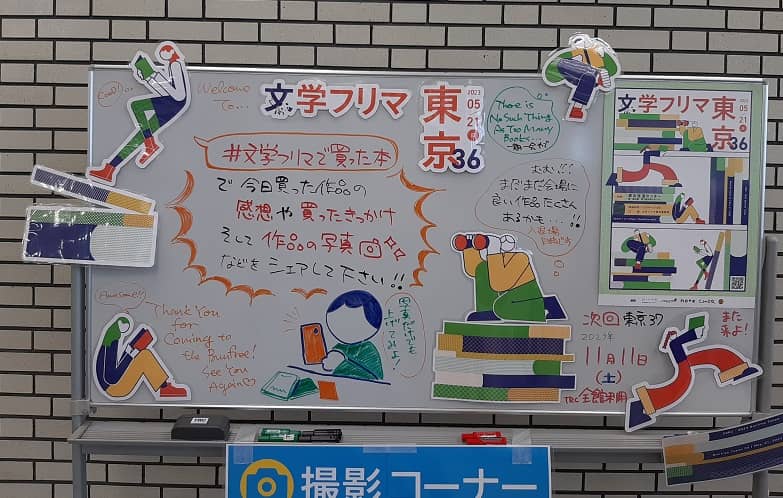 Cool!...
Welcome
To...
文学フリマ
東京36
2023
05
21
There is
No Such Thing
As Too Many
Books...
#文学フリマで買った本
で 今日買った作品の
感想や買ったきっかけ
そして 作品の写真
などを シェアして下さい!!
むむ!!!
まだまだ会場に
良い作品たくさん
あるかも...!!
入退場
自由です
Awesome!!
Thank You
for
Coming to
the Bunfree!
See You
Again♡
写真だけでも
上げてみよ!
次回 東京37
2023年
11月11日
(土)
TRC 全館使用
また
来よ!
文学フリマ
東京36
2023
05
21
撮影コーナー